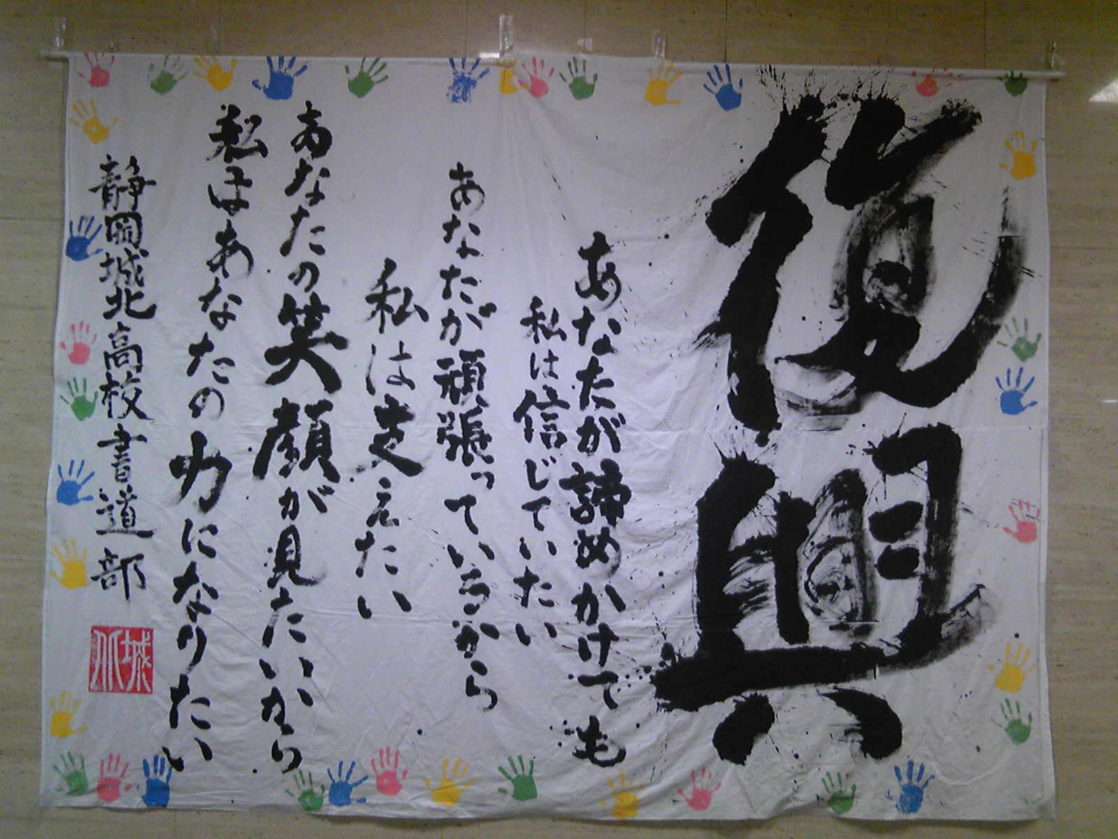 復興
あなたが諦めかけても
私は信じていたい
あなたが頑張っているから
私は支えたい
あなたの笑顔が見たいから
私はあなたの力になりたい
静岡城北高校書道部
城北